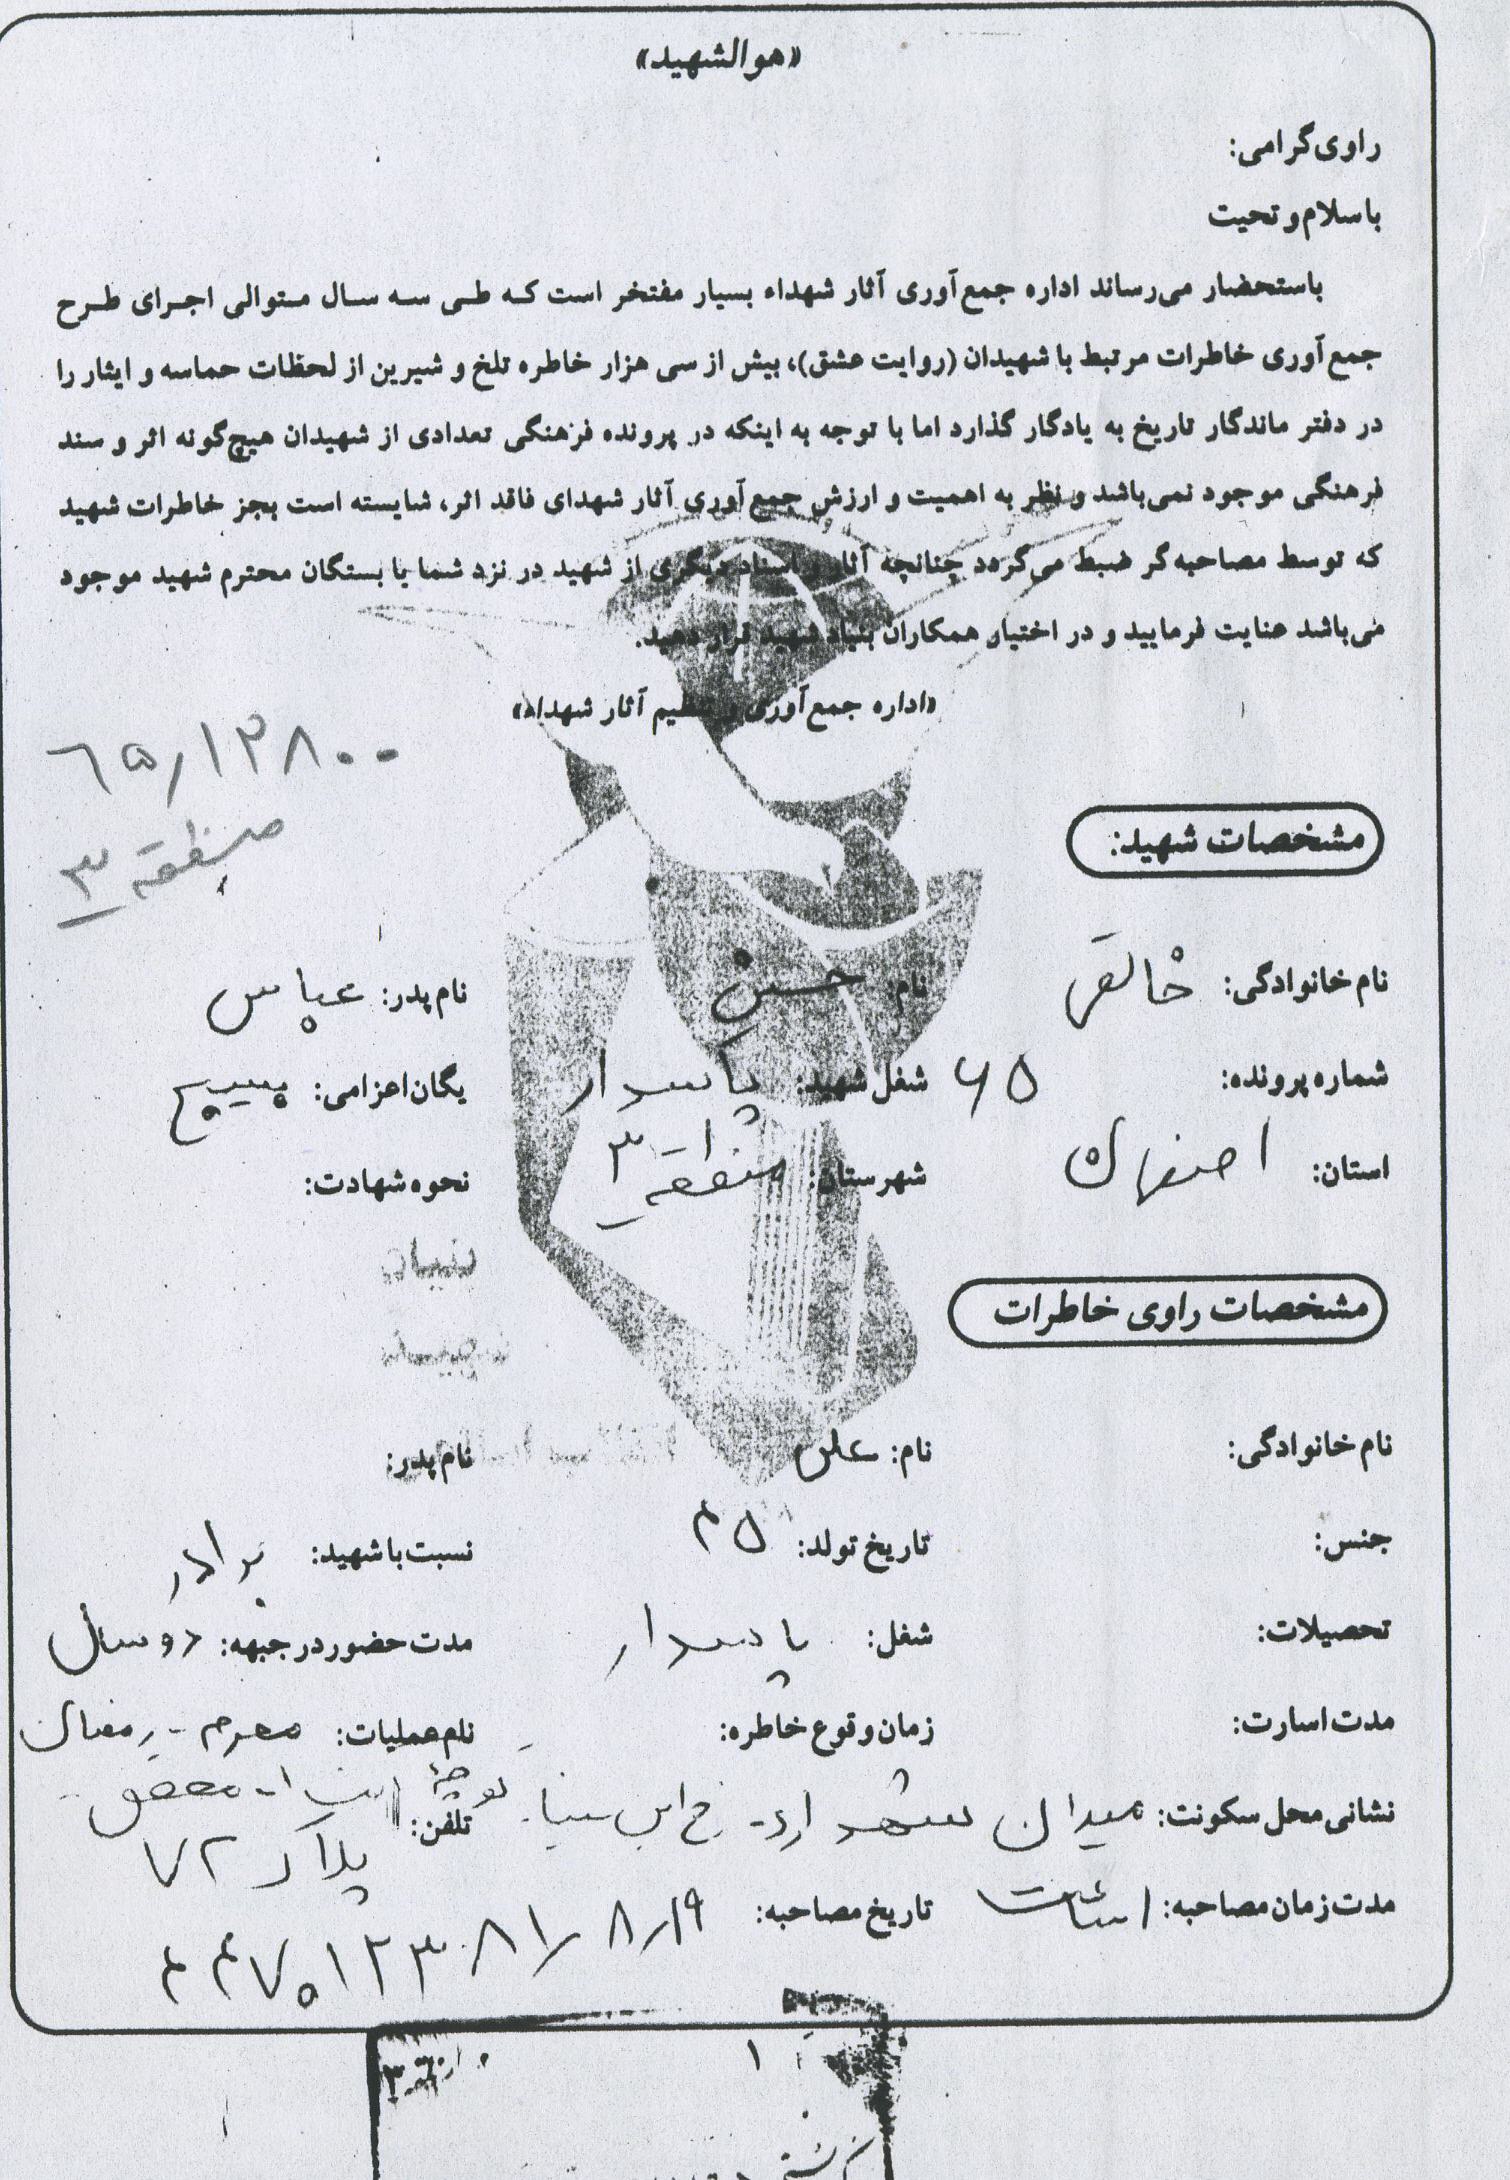 «هوالشهید»
راوی گرامی:
باسلام و تحیت
باستحضار می‌رساند اداره جمع‌آوری آثار شهداء بسیار مفتخر است که طی سه سال متوالی اجرای طرح
جمع‌آوری خاطرات مرتبط با شهیدان (روایت عشق)، بیش از سی هزار خاطره تلخ و شیرین از لحظات حماسه و ایثار را
در دفتر ماندگار تاریخ به یادگار گذارد اما با توجه به اینکه در پرونده فرهنگی تعدادی از شهیدان هیچ‌گونه اثر و سند
فرهنگی موجود نمی‌باشد و نظر به اهمیت و ارزش جمع‌آوری آثار شهدای فاقد اثر، شایسته است بجز خاطرات شهید
که توسط مصاحبه‌گر ضبط می‌گردد چنانچه آثار و اسناد دیگری از شهید در نزد شما یا بستگان محترم شهید موجود
می‌باشد عنایت فرمایید و در اختیار همکاران بنیاد شهید قرار دهید.
«اداره جمع‌آوری و تنظیم آثار شهداء»
۶۵/۱۲۸۰۰
منطقه ۳
مشخصات شهید:
نام خانوادگی: خالقی نام: حسن نام پدر: عباس
شماره پرونده: ۶۵ شغل شهید: پاسدار یگان اعزامی: بسیج
استان: اصفهان شهرستان: منطقه ۳ نحوه شهادت:
بنیاد
مشخصات راوی خاطرات
نام خانوادگی: نام: علی نام پدر:
جنس: تاریخ تولد: ۴۵ نسبت با شهید: برادر
تحصیلات: شغل: پاسدار مدت حضور در جبهه: دو سال
مدت اسارت: زمان وقوع خاطره: نام عملیات: محرم - رمضان
نشانی محل سکونت: میدان شهداء - خ ابن سینا - کوچه محقق - تلفن:
پلاک ۷۲
مدت زمان مصاحبه: ۱ ساعت تاریخ مصاحبه: ۸۱/۸/۱۹
۴۴۷۵۱۲۳
۱